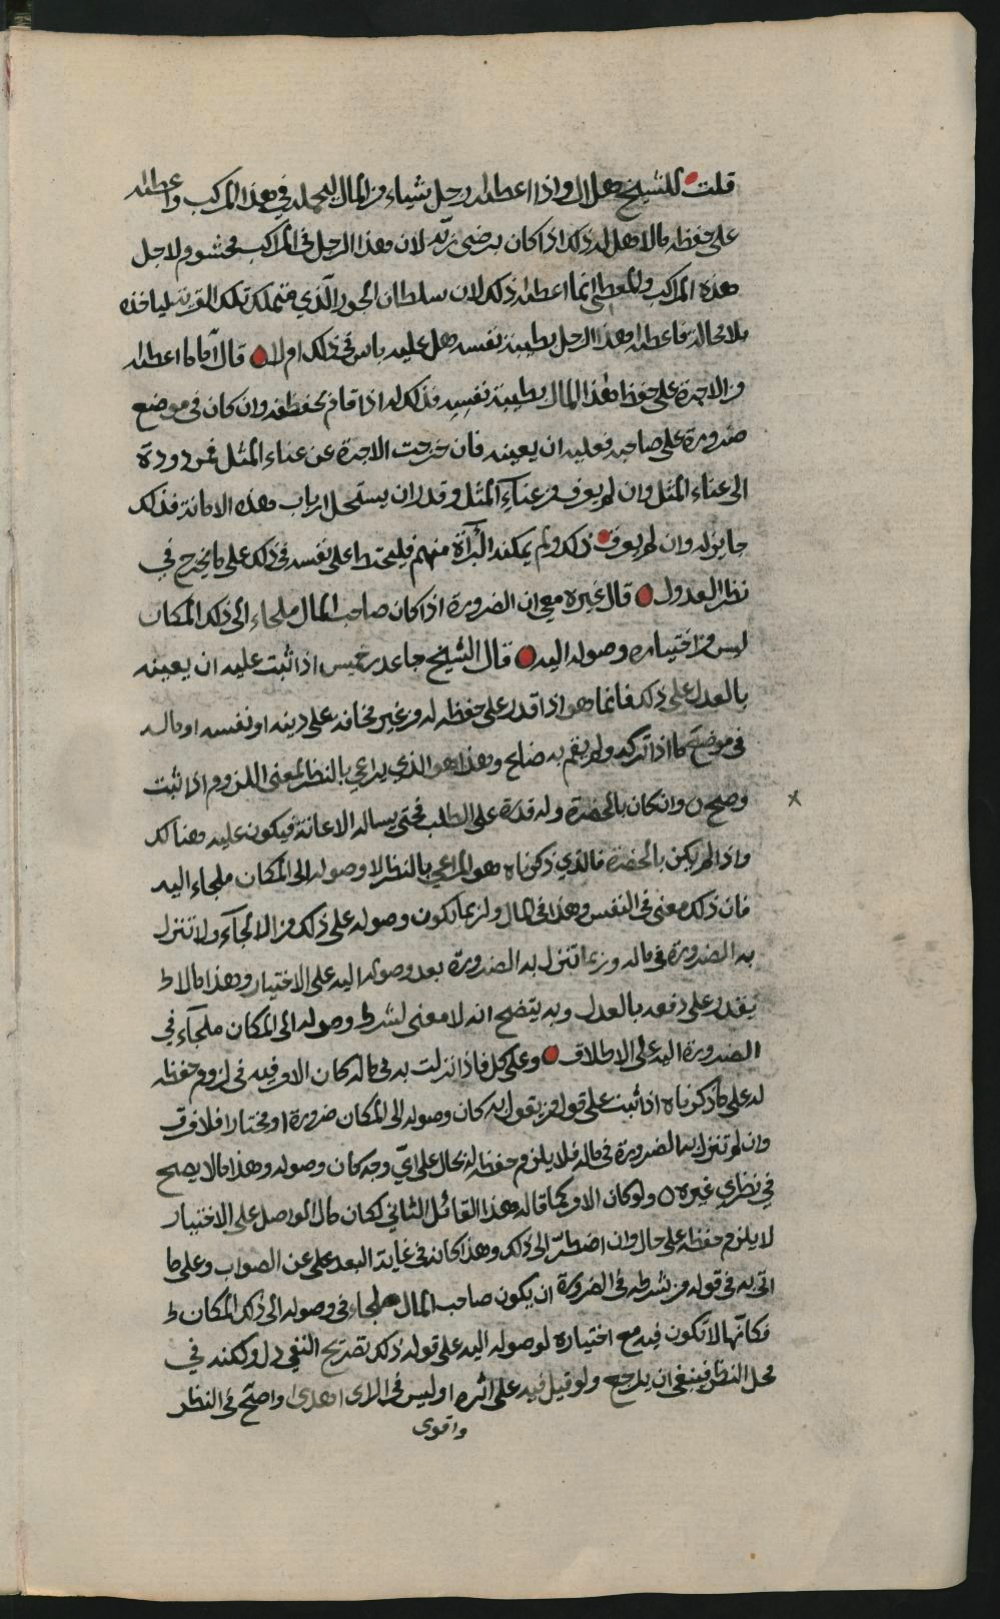 قلت للشيخ هلال واذا اعطاه رجل شياء من المال ليحمله في هذا المركب واعطاه
على حفظه مالا هل له ذلك اذا كان برضى ربّه لان هذا الرجل في المراكب محشوم ولاجل
هذه المراكب والمعطي انما اعطاه ذلك لان سلطان الجور الّذي متملك تلك القرية لياخذه
بلا محالة فاعطاه هذا الرجل بطيبة نفسه هل عليه باس في ذلك ام لا قال اما ما اعطاه
من الاجرة على حفظ هذا المال بطيبة نفسه فذلك له اذا قام بحفظه وان كان في موضع
ضرورة على صاحبه فعليه ان يعينه فان خرجت الاجرة عن عناء المثل فمردودة
الى عناء المثل وان لم يعرف من عناء المثل وقدر ان يستحل ارباب هذه الامانة فذلك
جايز له وان لم يعرف ذلك ولم يمكنه البرآءة منهم فليحتط على نفسه في ذلك على ما يخرج في
نظر العدول قال غيره معي ان الضرورة اذا كان صاحب المال ملجاء الى ذلك المكان
ليس من اختياره وصوله اليه قال الشيخ جاعد بن خميس اذا ثبت عليه ان يعينه
بالعدل على ذلك فانما هو اذا قدر على حفظه له من غير مخافة على دينه او نفسه او ماله
في موضع ما اذا تركه ولم يقم به ضاع وهذا هو الذي يراعي بالنظر لمعنى اللزوم اذا ثبت
وصح وان كان بالحضرة وله قدرة على الطلب فحتى يساله الاعانة فيكون عليه هنالك
واذا لم يكن بالحضرة فالذي ذكرناه هو المراعي بالنظر لا وصوله الى المكان ملجاء اليه
فان ذلك معنى في النفس وهذا في المال ولربما تكون وصوله على ذلك من الالجآء ولا تنزل
به الضرورة في ماله وربما تنزل به الضرورة بعد وصوله اليه على الاختيار وهذا ما لا
يقدر على دفعه بالعدل وبه يتضح انه لا معنى لشرط وصوله الى المكان ملجآء في
الضرورة اليه على الاطلاق وعلى كل فاذا نزلت به في ماله كان الامر فيه في لزوم حفظه
له على ما ذكرناه اذا ثبت على قول من يقول به كان وصوله الى المكان ضرورة او مختارا فلا فرق
وان لم تنزل به الضرورة في ماله فلا يلزم حفظه له بحال على ايّ وجه كان وصوله وهذا ما لا يصح
في نظري غيره ولو كان الامر كما قاله هذا القائل الثاني لكان مال الواصل على الاختيار
لا يلزم حفظه على حال وان اضطرّ الى ذلك وهذا كانه في غاية البعد على عن الصواب وعلى ما
اتى به في قوله من شرطه في الضرورة ان يكون صاحب المال ملجاء في وصوله الى ذلك المكان
فكانّها لا تكون فيه مع اختياره لوصوله اليه على قوله ذلك تصريح النفي ولكنه في
محل النظر فينبغي ان يراجع ولو قيل فيه على اثره اوليس في الراى اهدى واصحّ في النظر
واقوى